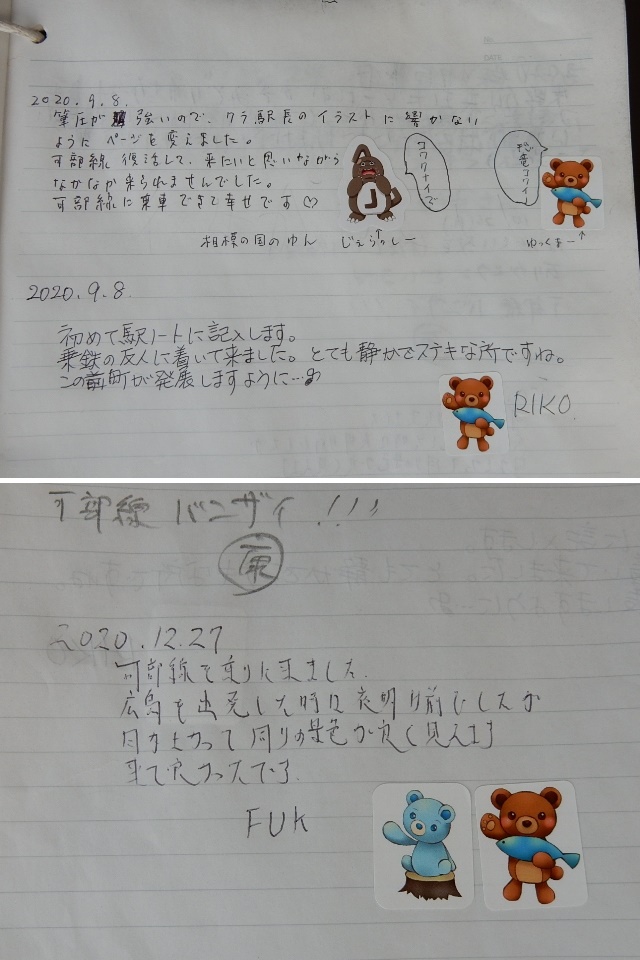 2020.9.8.
筆圧が強いので、クラ駅長のイラストに響かない
ようにページを変えました。
可部線復活して、来たいと思いながら
なかなか来られませんでした。
可部線に乗車できて幸せです♡
コワクナイデ
恐竜コワイ
J
相模の国のゆん じぇらっしー ↑
ゆっくまー ↑
2020.9.8.
初めて駅ノートに記入します。
乗鉄の友人に着いて来ました。とても静かでステキな所ですね。
この前町が発展しますように…
RIKO.
可部線バンザイ!!!
2020.12.27
可部線で乗りに来ました.
広島を出発した時は夜明け前でしたが
日が上がって周りの景色が良く見えます
来て良かったです.
FUK